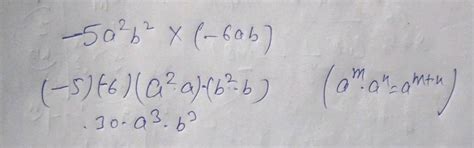 -5a²b² × (-6ab)
(-5)(-6)(a²·a)·(b²·b) (aᵐ·aⁿ=aᵐ⁺ⁿ)
·30·a³·b³